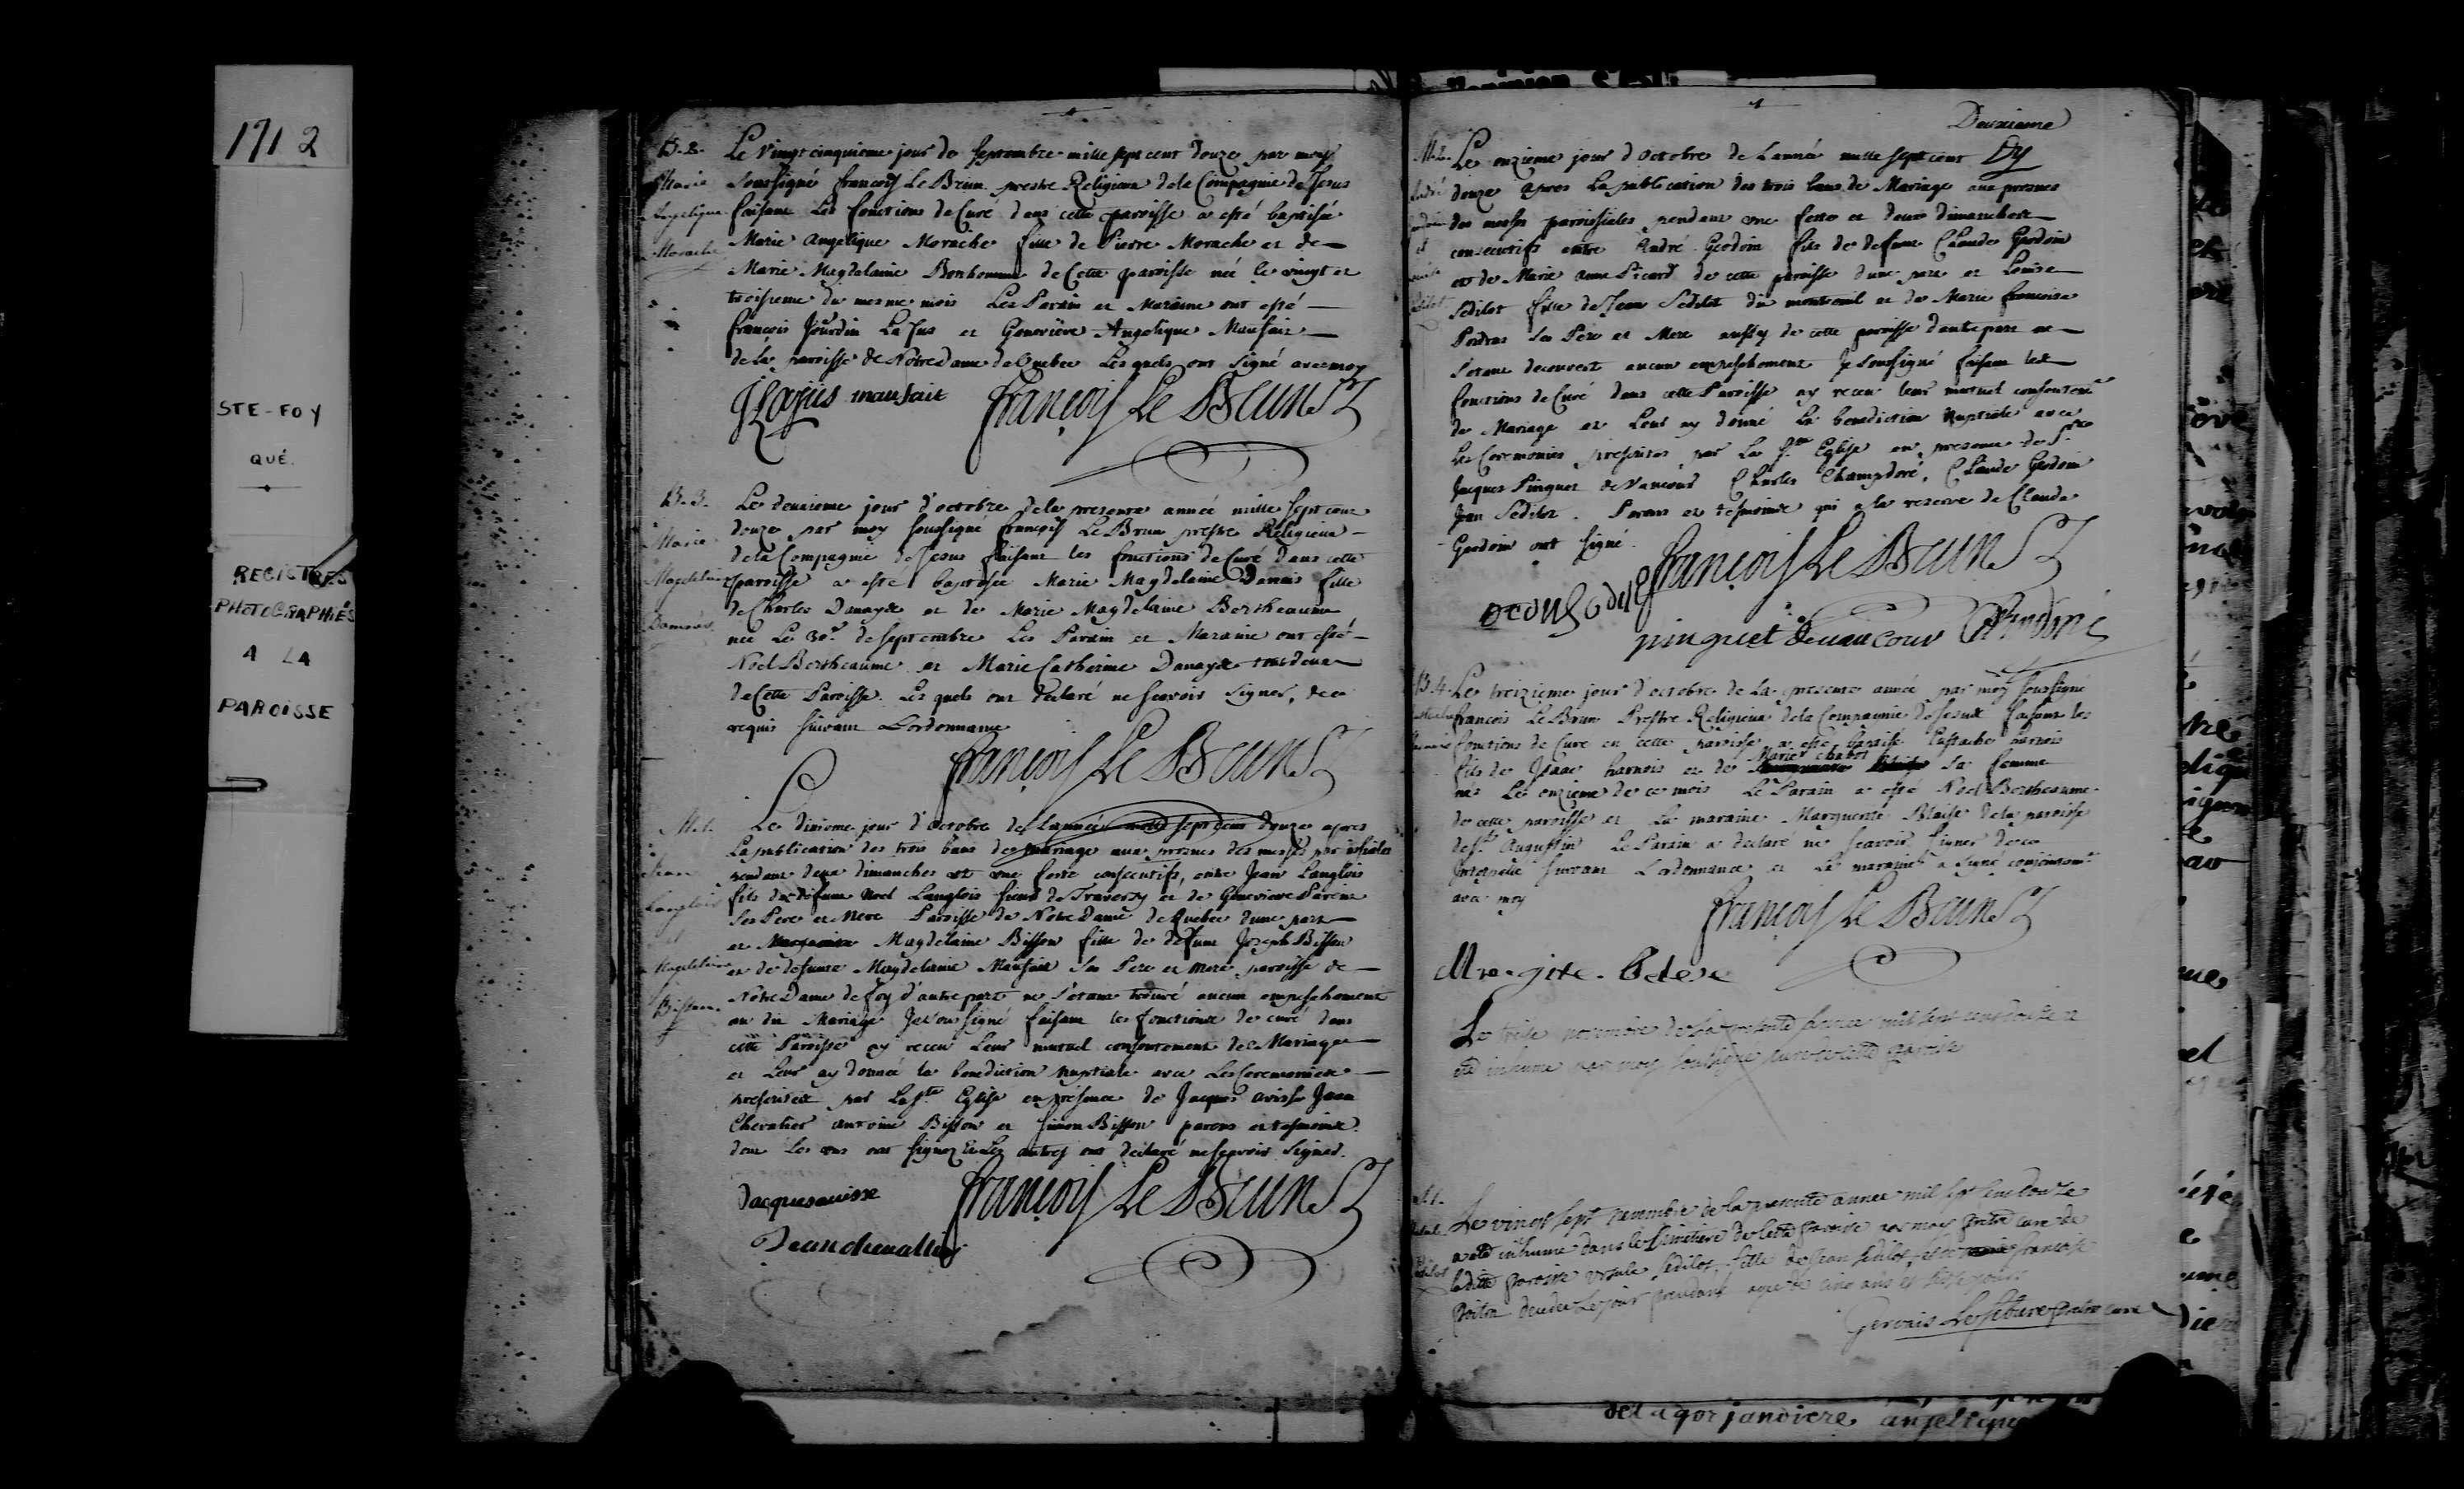 1712
STE-FOY
QUÉ.
REGISTRES
PHOTOGRAPHIÉS
A LA
PAROISSE
B. 2.
Marie
Angelique
Morache
Le vingt cinquieme jour de septembre mille sept cent douze par moy
soussigné françois Le Brun prestre Religieux de la Compagnie de Jesus
faisant les fonctions de Curé dans cette paroisse a esté baptisée
Marie Angelique Morache fille de Pierre Morache et de
Marie Magdelaine Bonhomme de Cette paroisse née le vingt et
troisieme du mesme mois Les Parain et Maraine ont esté
françois Jourdin Lajus et Genevieve Angelique Maufait
de la paroisse de Notre Dame de Quebec Lesquels ont signé avec moy
JLajus maufait françois Le Brun SJ
B. 3.
Marie
Magdelaine
Le deuxieme jour d'octobre de la presente année mille sept cent
douze par moy soussigné françois Le Brun prestre Religieux
de la Compagnie de Jesus faisant les fonctions de Curé dans cette
paroisse a esté baptisée Marie Magdelaine fille
de Charles et de Marie Magdelaine Bertheaume
née Le 30e de septembre Les Parain et Maraine ont esté
Noel Bertheaume et Marie Catherine tous deux
de Cette Paroisse. Lesquels ont declaré ne scavoir signer, de ce
requis suivant L'ordonnance
françois Le Brun SJ
M. 1.
Jean
Langlois
et
Magdelaine
Bisson
Le dixieme jour d'octobre de l'année mille sept cent douze apres
La publication des trois bans de mariage aux prosnes des messes paroissiales
pendant deux dimanches et une feste consecutifs, entre Jean Langlois
fils de defunt Noel Langlois sieur de Traversy et de Genevieve Parent
ses Pere et Mere Paroisse de Notre Dame de Quebec d'une part
et Magdelaine Bisson fille de defunt Joseph Bisson
et de defunte Magdelaine Maufait ses Pere et Mere paroisse de
Notre Dame de foy d'autre part ne s'etant trouvé aucun empeschement
au dit Mariage Je soussigné faisant les fonctions de curé dans
cette Paroisse ay receu leur mutuel consentement de Mariage
et Leur ay donné la benediction nuptiale avec Les Ceremonies
prescrites par La Ste Eglise en presence de Jacques avisse Jean
Chevalier antoine Bisson et Simon Bisson parens et tesmoins
dont Les uns ont signez et Les autres ont declaré ne scavoir signer.
Jacques avisse françois Le Brun SJ
Jean chevallier
Deuxieme
M. 2.
Le onzieme jour d'octobre de L'année mille sept cent
douze apres La publication des trois bans de Mariage aux prosnes
des messes paroissiales pendant une feste et deux dimanches
consecutifs entre André Geodoin fils de defunt Claude Geodoin
et de Marie Anne Picard de cette paroisse d'une part et Louise
Sedilot fille de Jean Sedilot dit montreuil et de Marie francoise
ses Pere et Mere aussy de cette paroisse d'autre part ne
s'etant decouvert aucun empeschement Je soussigné faisant les
fonctions de Curé dans cette Paroisse ay receu leur mutuel consentemt
de Mariage et Leur ay donné La benediction Nuptiale avec
Les Ceremonies prescrites par La Ste Eglise en presence de
Jacques Pinguet de Vaucour Charles Champdoré, Claude Geodoin
Jean Sedilot. Parens et tesmoins qui a la reserve de Claude
Geodoin ont signé.
françois Le Brun SJ
pinguet de uaucour
B. 4.
Le treizieme jour d'octobre de La presente année par moy soussigné
francois Le Brun Prestre Religieux de la Compagnie de Jesus faisant les
fonctions de Curé en cette paroisse a esté baptisé Eustache harnois
fils de Isaac harnois et de Marie chabot sa femme
né Le onzieme de ce mois Le Parain a esté Noel Bertheaume
de cette paroisse et La maraine Marguerite Blaise de la paroisse
de St Augustin Le Parain a declaré ne scavoir signer de ce
suivant L'ordonnance et La maraine a signé conjointemt
avec moy
françois Le Brun SJ
Le novembre de la presente année mil sept cens douze a
eté inhumé par moy soussigné curé de cette paroisse
S. 1.
Le vingt sept novembre de la presente année mil sept cens douze
a eté inhumé dans le Cimetiere de cette paroisse par moy pretre curé de
ladite paroisse ursule Sedilot, fille de Jean Sedilot, et de francoise
decedee Le jour agee de cinq ans et jours
Gervais Lefebure pretre curé